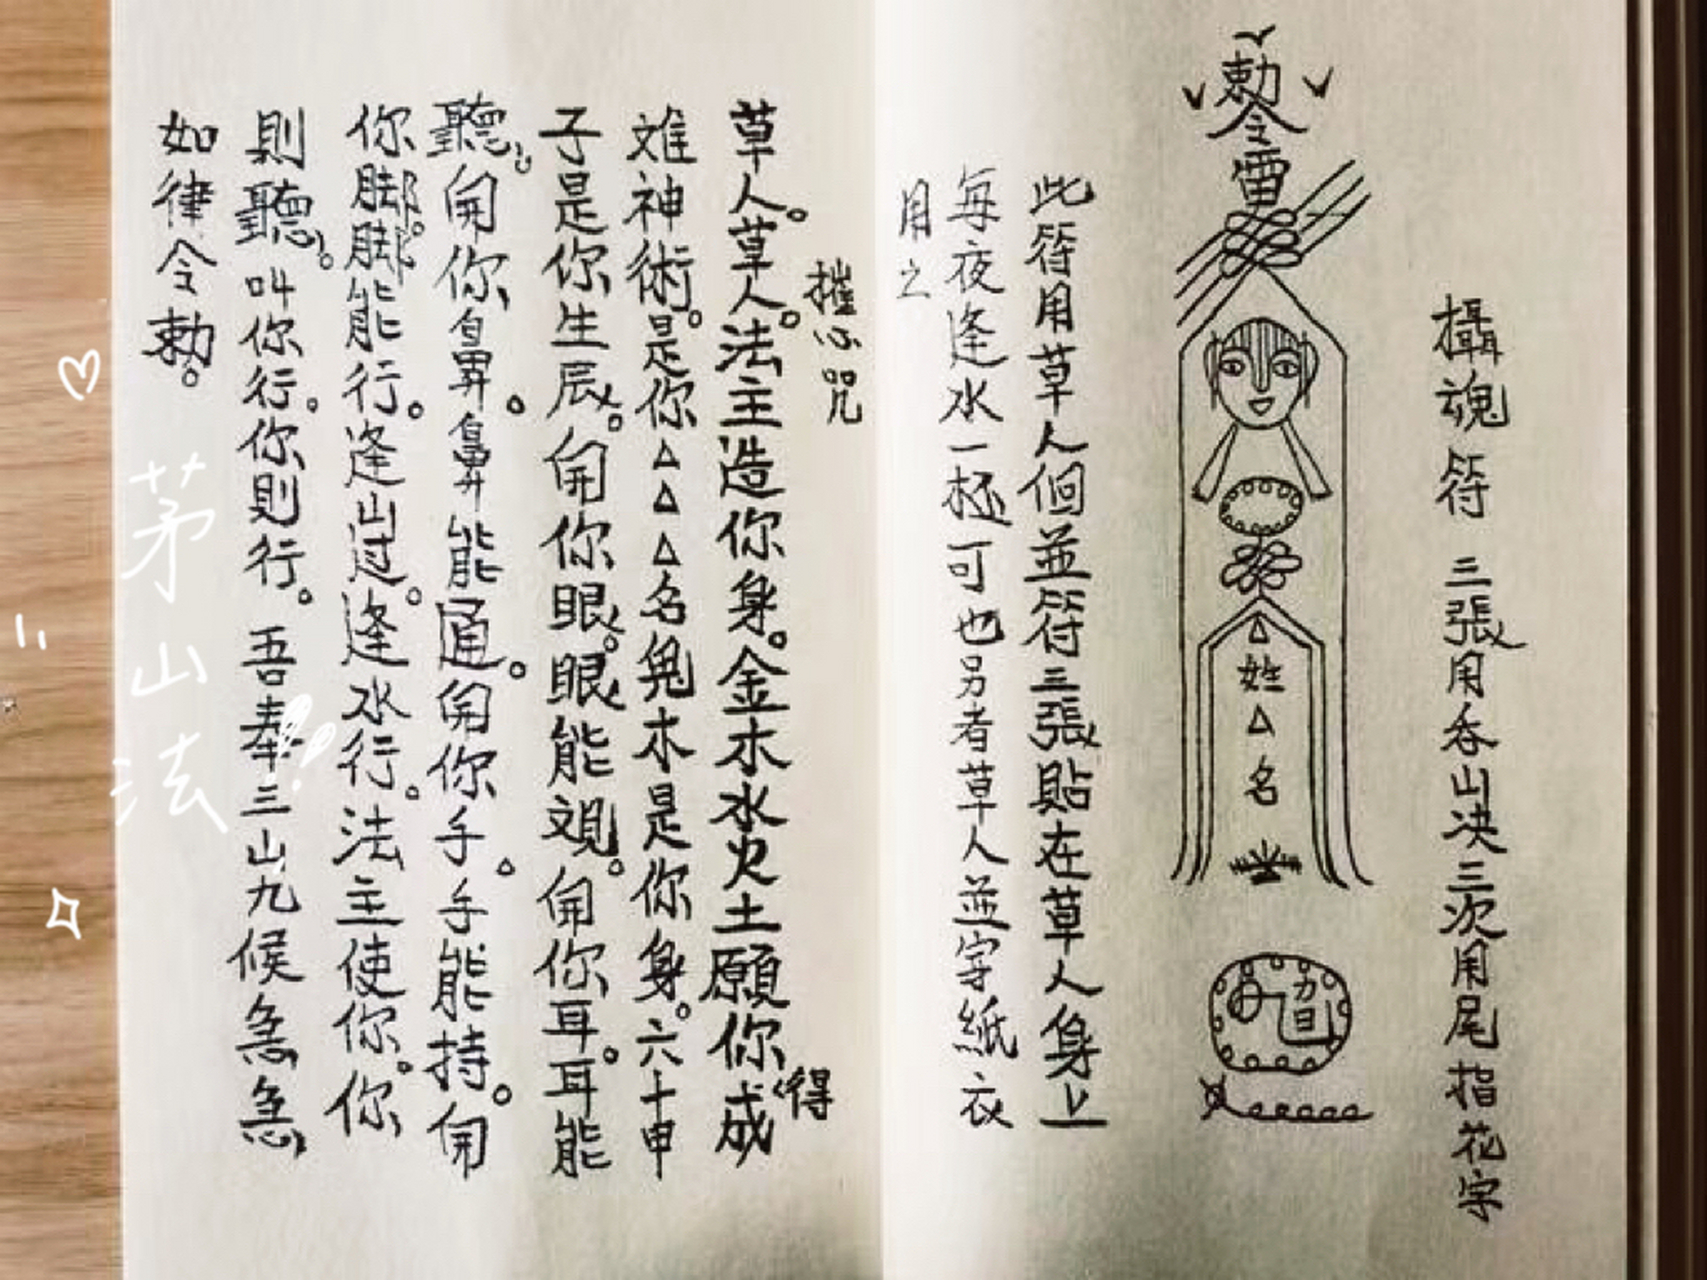 攝魂符 三張用吞山決三次用尾指花字
勅令雷
△姓△名
此符用草人個並符三張貼在草人身上
每夜逢水一極可也另者草人並字紙衣
用之
摧心咒
草人。草人。法主造你身。金木水火土願你成得
难神術。是你△△△名鬼木是你身。六十甲
子是你生辰。開你眼。眼能覌。開你耳。耳能
聽。開你鼻。鼻能通。開你手。手能持。開
你脚。脚能行。逢山过。逢水行。法主使你。你
則聽。叫你行。你則行。吾奉三山九候急急
如律令勅。
茅山法